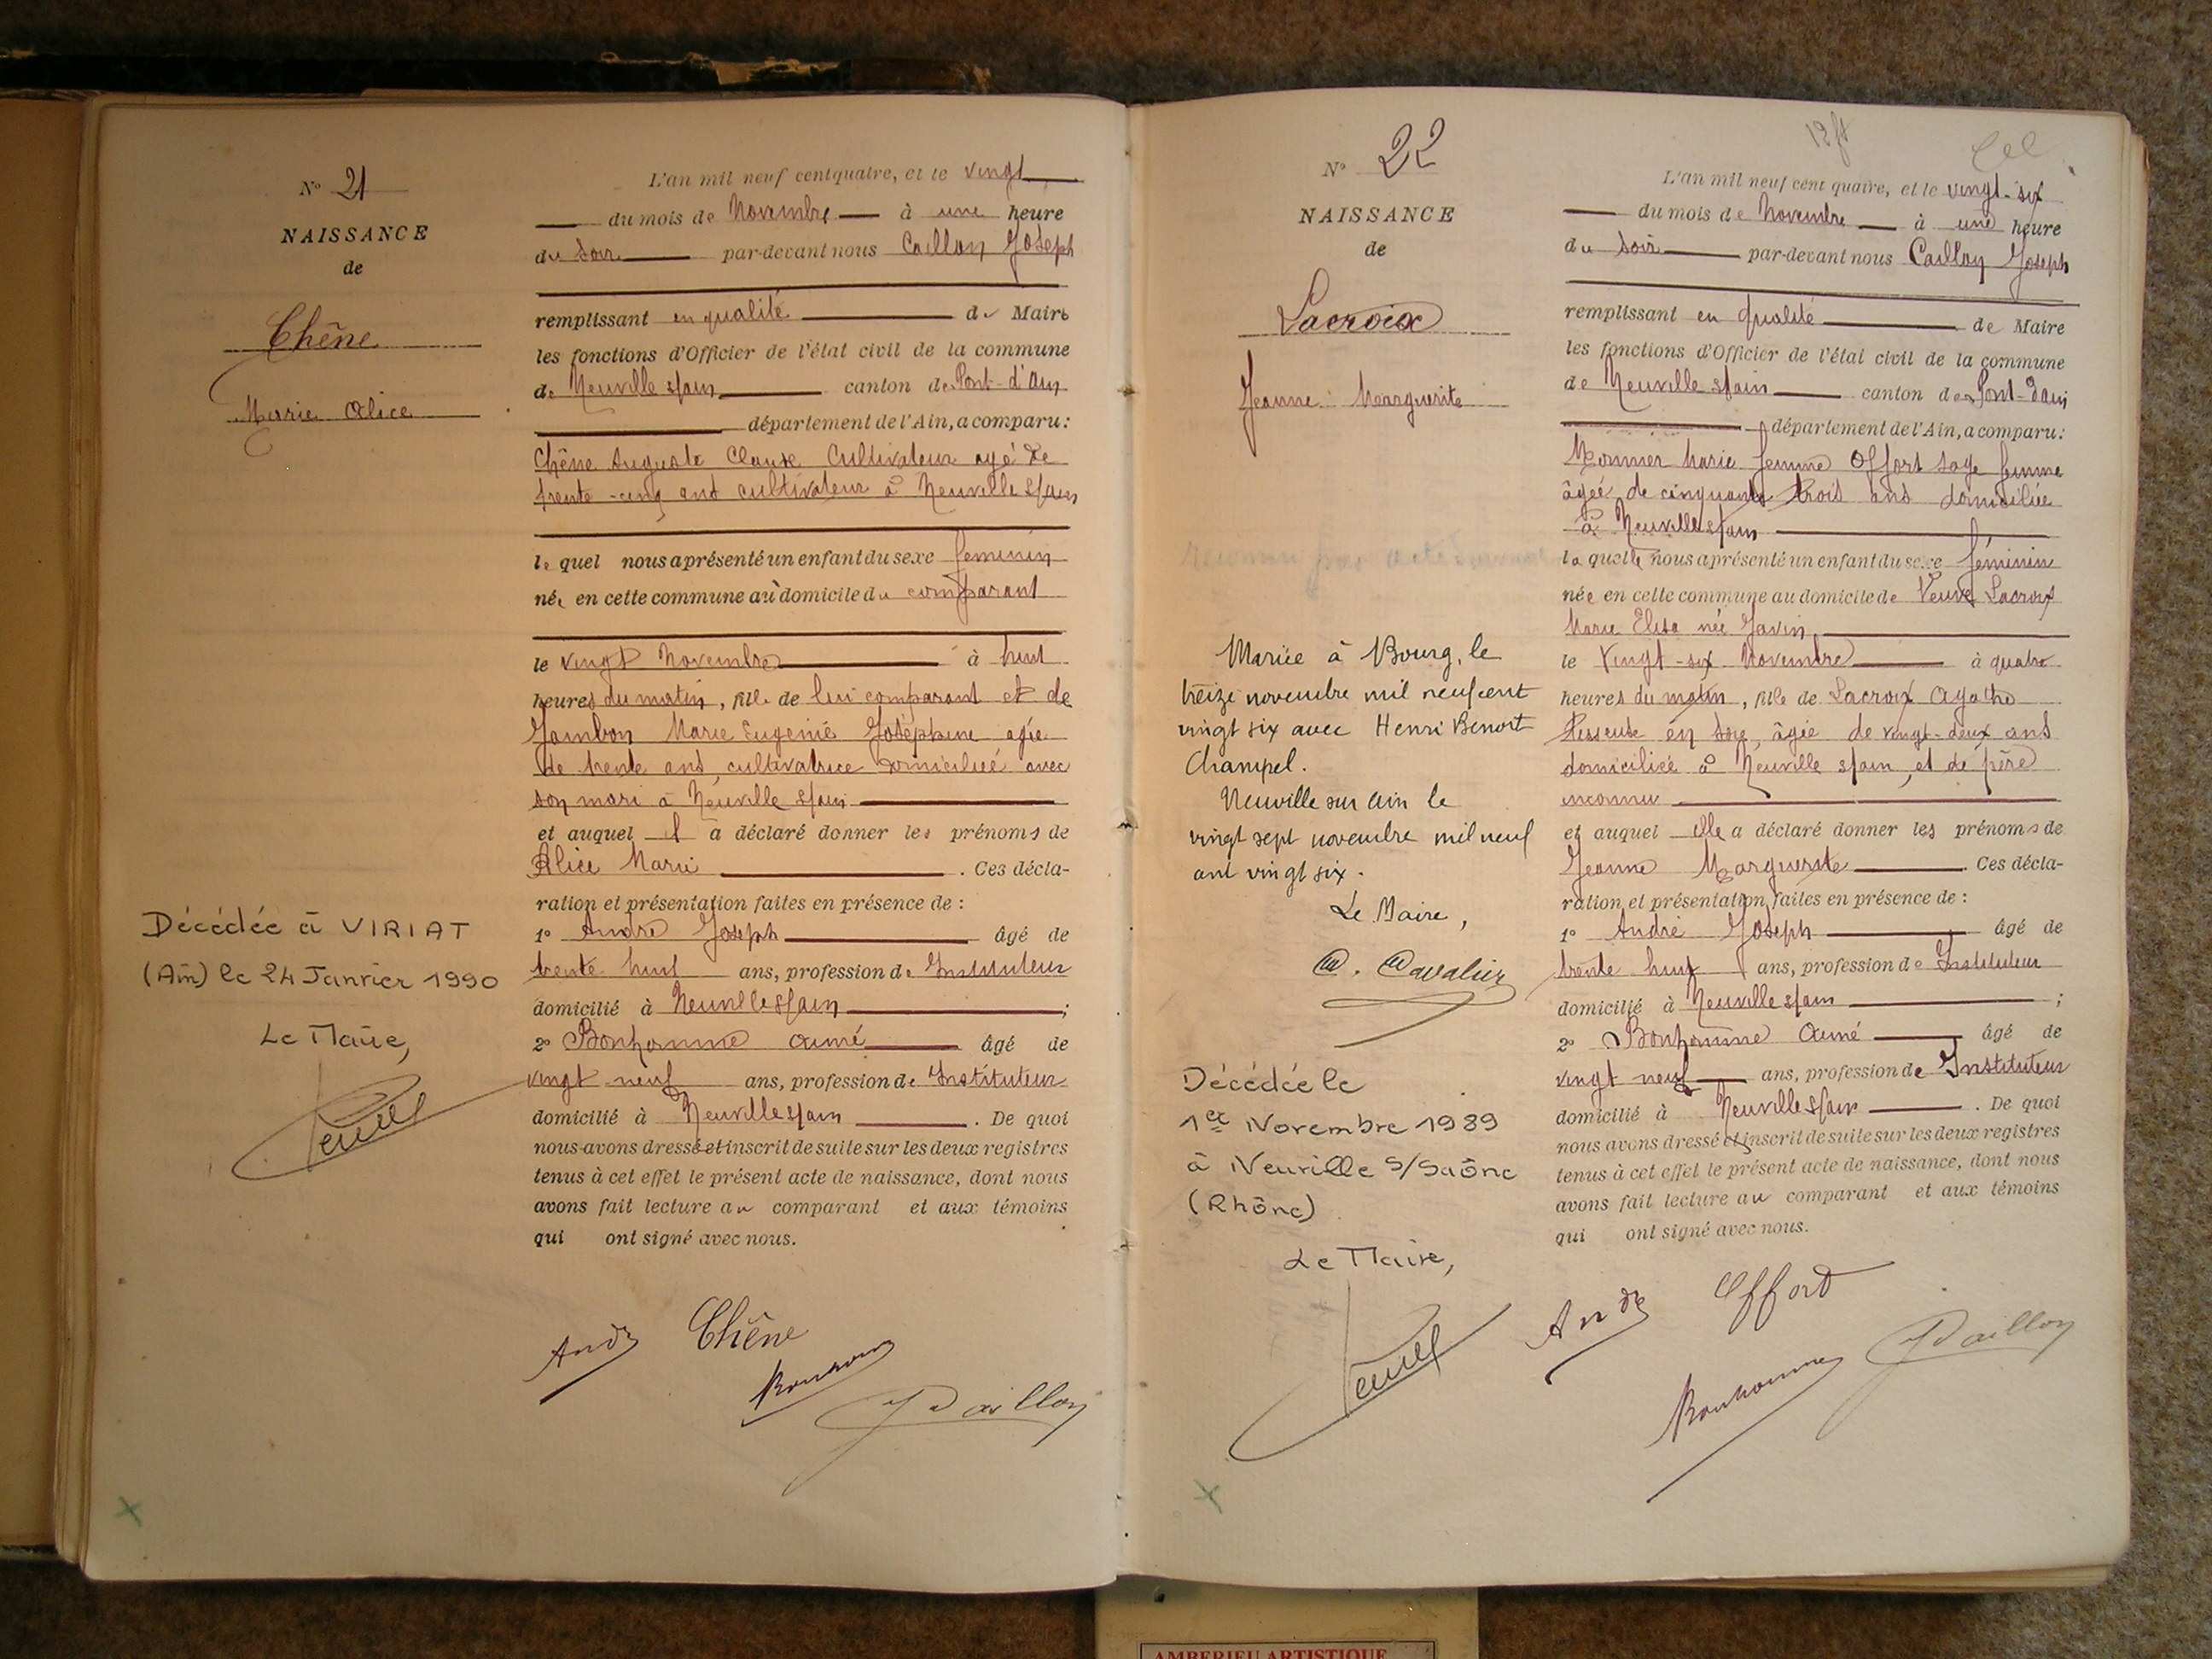 N° 21
NAISSANCE
de
Chêne
Marie Alice
Décédée à VIRIAT
(Ain) le 24 Janvier 1990
Le Maire,
L'an mil neuf cent quatre, et le vingt
du mois de Novembre à une heure
du soir par-devant nous Caillon Joseph
remplissant en qualité de Maire
les fonctions d'Officier de l'état civil de la commune
de Neuville s/ain canton de Pont-d'ain
département de l'Ain, a comparu:
Chêne Auguste Claude Cultivateur agé de
trente-cinq ans cultivateur à Neuville s/ain
le quel nous a présenté un enfant du sexe féminin
née en cette commune au domicile du comparant
le vingt Novembre à huit
heures du matin, fille de lui comparant et de
Jambon Marie Eugenie Joséphine agée
de trente ans, cultivatrice domiciliée avec
son mari à Neuville s/ain
et auquel il a déclaré donner les prénoms de
Alice Marie . Ces décla-
ration et présentation faites en présence de :
1° André Joseph âgé de
trente huit ans, profession de Instituteur
domicilié à Neuville s/ain ;
2° Bonhomme Aimé âgé de
vingt neuf ans, profession de Instituteur
domicilié à Neuville s/ain . De quoi
nous avons dressé et inscrit de suite sur les deux registres
tenus à cet effet le présent acte de naissance, dont nous
avons fait lecture au comparant et aux témoins
qui ont signé avec nous.
André Chêne
Bonhomme
J Caillon
N° 22
NAISSANCE
de
Lacroix
Jeanne Marguerite
Mariée à Bourg, le
treize novembre mil neuf cent
vingt six avec Henri Benoit
Champel.
Neuville sur Ain le
vingt sept novembre mil neuf
cent vingt six.
Le Maire,
Cavalier
Décédée le
1er Novembre 1989
à Neuville S/Saône
(Rhône)
Le Maire,
L'an mil neuf cent quatre, et le vingt-six
du mois de Novembre à une heure
du soir par-devant nous Caillon Joseph
remplissant en qualité de Maire
les fonctions d'Officier de l'état civil de la commune
de Neuville s/ain canton de Pont-d'ain
département de l'Ain, a comparu:
Marie femme Offort sage femme
âgée de cinquante trois ans domiciliée
à Neuville s/ain
la quelle nous a présenté un enfant du sexe féminin
née en cette commune au domicile de Veuve Lacroix
Marie Elisa née Gavin
le Vingt-six Novembre à quatre
heures du matin, fille de Lacroix Agathe
Tisseuse en soie, âgée de vingt-deux ans
domiciliée à Neuville s/ain, et de père
inconnu
et auquel elle a déclaré donner les prénoms de
Jeanne Marguerite . Ces décla-
ration et présentation faites en présence de :
1° André Joseph âgé de
trente huit ans, profession de Instituteur
domicilié à Neuville s/ain ;
2° Bonhomme Aimé âgé de
vingt neuf ans, profession de Instituteur
domicilié à Neuville s/ain . De quoi
nous avons dressé et inscrit de suite sur les deux registres
tenus à cet effet le présent acte de naissance, dont nous
avons fait lecture au comparant et aux témoins
qui ont signé avec nous.
André Offort
Bonhomme
J Caillon
AMBERIEU ARTISTIQUE